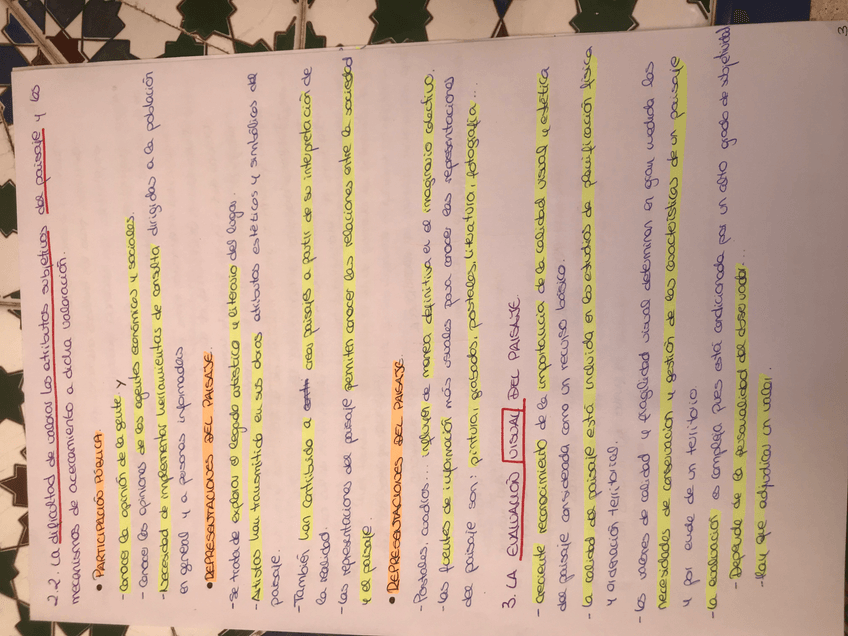 2.2. La dificultad de valorar los atributos subjetivos del paisaje y los
mecanismos de acercamiento a dicha valoración.
• PARTICIPACIÓN PÚBLICA.
- Conocer la opinión de la gente. y
- Conocer las opiniones de los agentes económicos y sociales.
- Necesidad de implementar herramientas de consulta dirigidas a la población
en general y a personas informadas
• REPRESENTACIONES DEL PAISAJE.
- Se trata de explorar el legado artístico y literario del lugar.
- Artistas han transmitido en sus obras atributos estéticos y simbólicos del
paisaje.
- También han contribuido a crear paisajes a partir de su interpretación de
la realidad.
- Las representaciones del paisaje permiten conocer las relaciones entre la sociedad
y el paisaje.
• REPRESENTACIONES DEL PAISAJE.
- Postales, cuadros... influyen de manera definitiva en el imaginario colectivo.
- Las fuentes de información más usuales para conocer las representaciones
del paisaje son: pintura, grabados, postales, literatura, fotografía...
3. LA EVALUACIÓN VISUAL DEL PAISAJE
- Creciente reconocimiento de la importancia de la calidad visual y estética
del paisaje considerada como un recurso básico.
- La calidad del paisaje está incluida en los estudios de planificación física
y ordenación territorial.
- Los valores de calidad y fragilidad visual determinan en gran medida las
necesidades de conservación y gestión de las características de un paisaje
y por ende de un territorio.
- La evaluación es compleja pues está condicionada por un alto grado de subjetividad
- Depende de la personalidad del observador...
- Hay que adjudicar un valor.
3